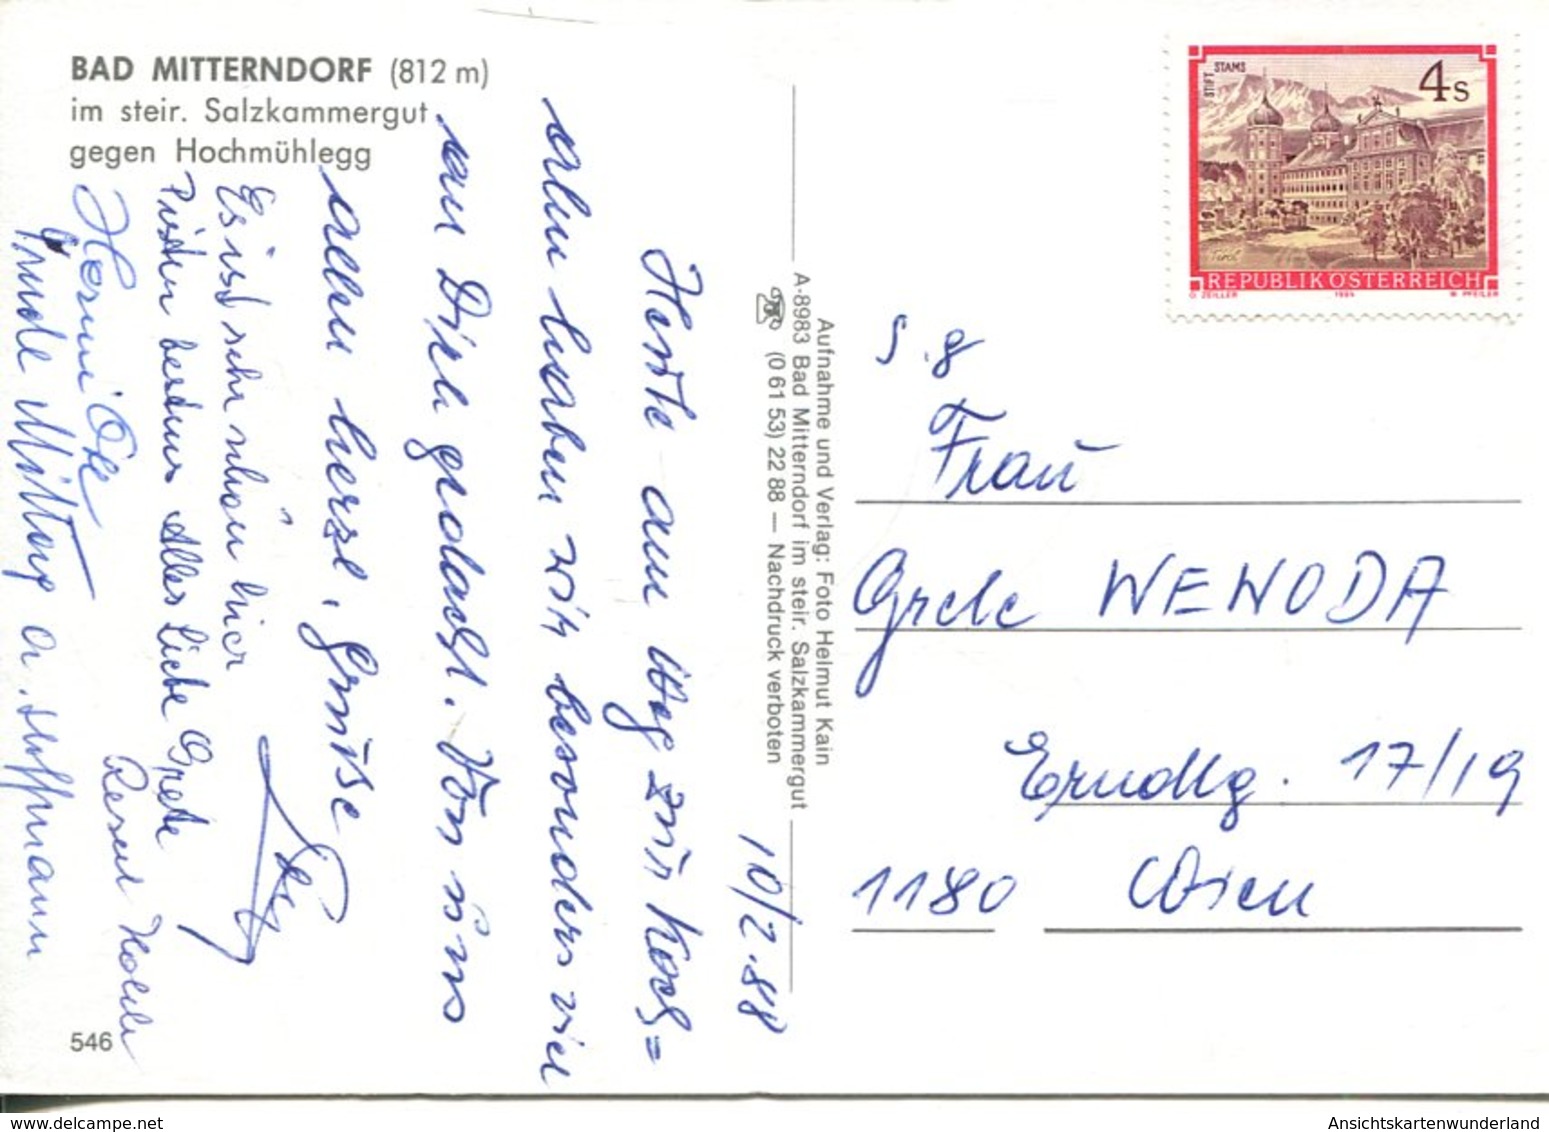 BAD MITTERNDORF (812 m)
im steir. Salzkammergut
gegen Hochmühlegg
10/2.88
Heute am Weg zur Koch=
alm haben wir besonders viel
an Dich gedacht. Von uns
allen herzl. Grüsse
Es ist sehr schön hier
Pisten bestens Alles Liebe Grete
Hermi
Trude Mittag A. Hoffmann
546
Aufnahme und Verlag: Foto Helmut Kain
A-8983 Bad Mitterndorf im steir. Salzkammergut
(0 61 53) 22 88 — Nachdruck verboten
STIFT STAMS
4 S
Tirol
REPUBLIK ÖSTERREICH
O. ZEILLER 1984 W. PFEILER
S.g
Frau
Grete WENODA
Erndtg. 17/19
1180 Wien
Ansichtskartenwunderland